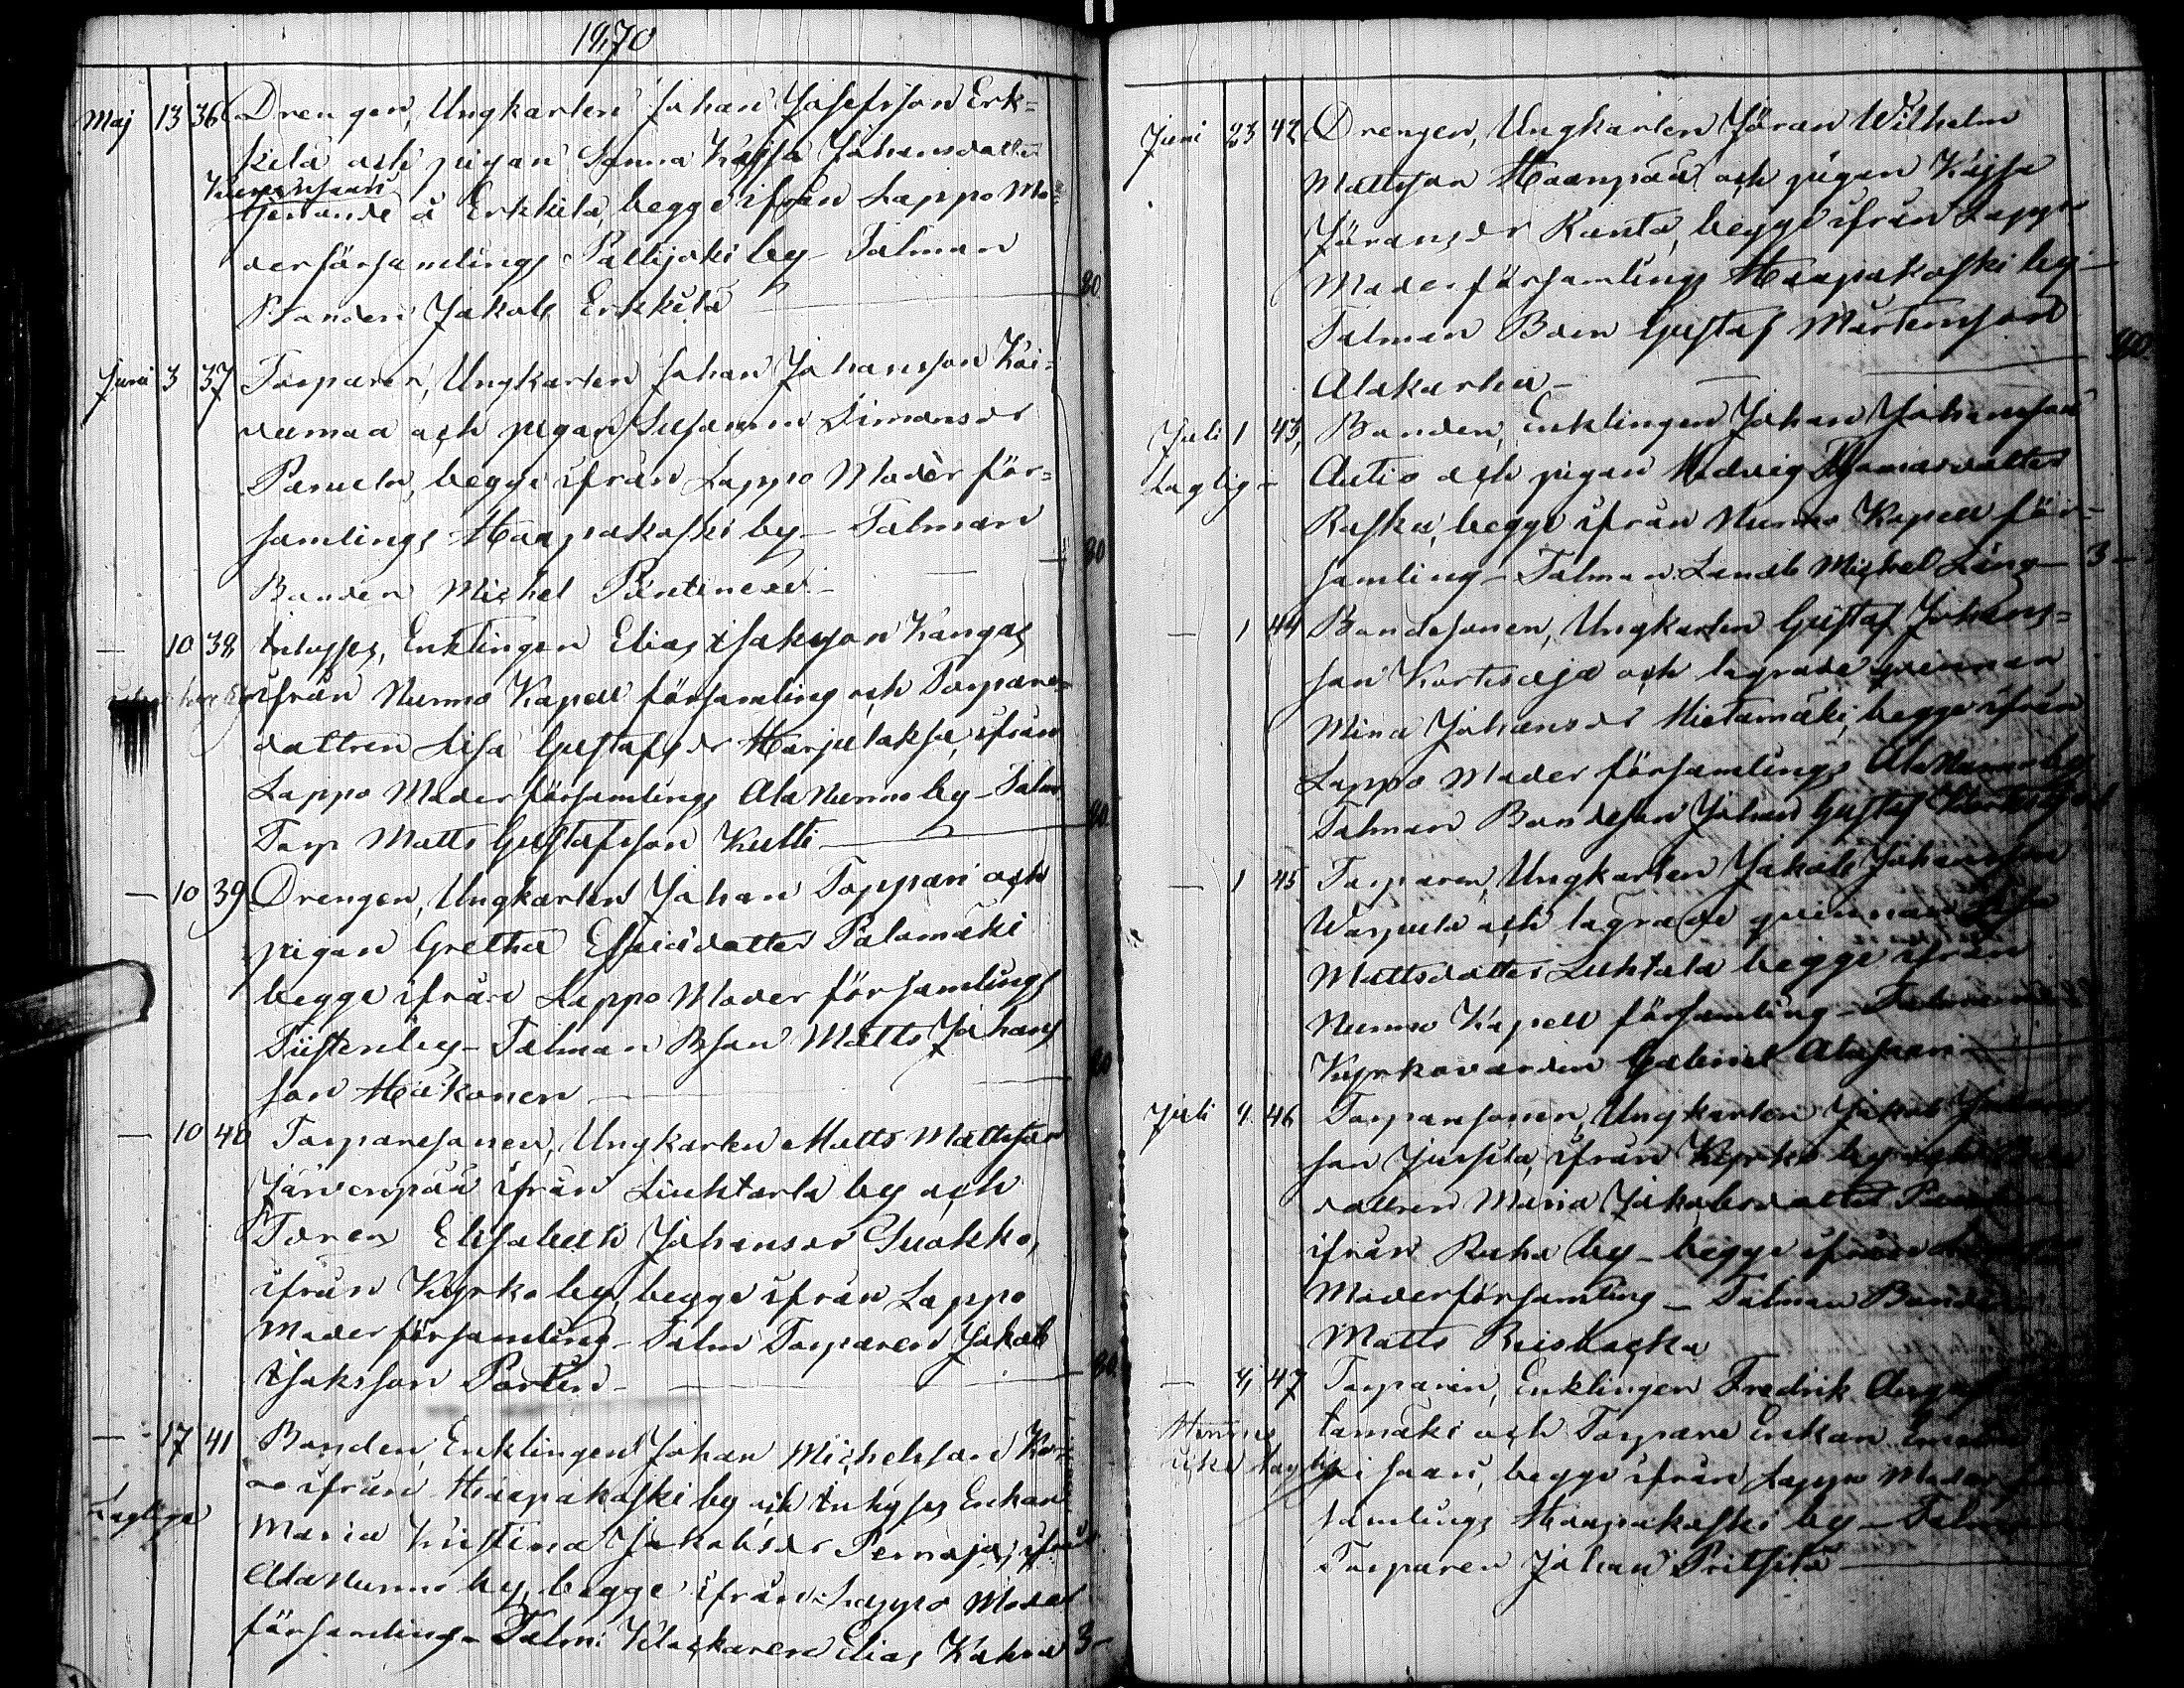 1870
Maj 13 36 Drengen, Ungkarlen Johan Josefsson Erk=
kilä och pigan Sanna Kajsa Johansdotter
tjenande å Erkkilä, begge ifrån Lappo Mo=
derförsamlings Pattijoki by _ Talman
Bonden Jakob Erkkilä 80
Juni 3 37 Torparen, Ungkarlen Johan Johansson Koi=
vumaa och pigan Susanna Simonsdr
Panula, begge ifrån Lappo Moder för=
samlings Haapakoski by _ Talman
Bonden Michel Perttinen _ 80
_ 10 38 Inhyses, Enklingen Elias Isaksson Kangas
ifrån Nurmo Kapell församling och Torpare=
dottren Lisa Gustafsdr Harjulakso, ifrån
Lappo Moder församlings Ala Nurmo by _ Talm
Torp Matts Gustafsson Kultti 80
_ 10 39 Drengen, Ungkarlen Johan Toppari och
pigan Gretha Esaiædotter Palomäki
begge ifrån Lappo Moder församlings
Tiisten by _ Talman Bson Matts Johans
son Häkonen 80
_ 10 40 Torparesonen, Ungkarlen Matts Mattsson
Järvenpää ifrån Liuhtarla by och
Elisabeth Johansdr Luokko,
ifrån Kyrko by, begge ifrån Lappo
Moder församling _ Talm Torparen Jakob
Isaksson Portin _ 80
_ 17 41 Bonden, Enklingen Johan Michelsson
ifrån Haapakoski by och Inhyses Enkan
Laglyst
Maria Kristina Jakobsdr Pernaja, ifrån
Ala Nurmo by, begge ifrån Lappo Moder
församling _ Talm: Klockaren Elias Kahra 3 _
Juni 23 42 Drengen, Ungkarlen Jöran Wilhelm
Mattsson Haanpää och pigan Kajsa
Jöransdr Ranta, begge ifrån Lappo
Moder församlings Haapakoski by _
Talman Bden Gustaf Mårtensson
Alakarhu _ 80
Juli 1 43 Bonden, Enklingen Johan Johansson
Laglig _ Autio och pigan Hedvig Thomasdotter
Raska, begge ifrån Nurmo Kapell för=
samling _ Talman Landb Michel Lång _ 3 _
_ 1 44 Bondesonen, Ungkarlen Gustaf Johans=
son Kortesoja och lägrade qvinnan
Mina Johansdr Hietamäki, begge ifrån
Lappo Moder församlings Ala Nurmo by
Talman Bondeson Johan Gustaf Kortesoja
_ 1 45 Torparen, Ungkarlen Jakob Johansson
Warpula och lägrade qvinnan Lisa
Mattsdotter Luhtala begge ifrån
Nurmo Kapell församling _ Talman
Kyrkovärden Gabriel Alasaari
Juli 9 46 Torparesonen, Ungkarlen Jakob
son Jussila, ifrån Kyrko by och
dottren Maria Jakobsdotter
ifrån Ruha by _ begge ifrån
Moderförsamling _ Talman Bonden
Matts Reisbacka
_ 9 47 Torparen, Enklingen Fredrik
tamäki och Torpare Enkan
saari, begge ifrån Lappo Moder för
samlings Haapakoski by _ Talman
Torparen Johan Pritsilä